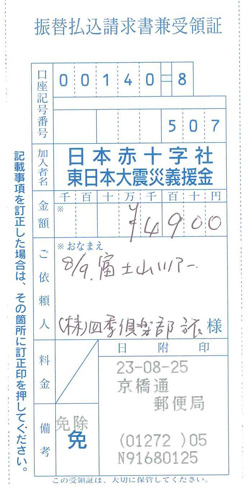 振替払込請求書兼受領証
口座記号番号
00140=8
507
加入者名
日本赤十字社
東日本大震災義援金
金額
※
千百十万千百十円
¥4900
ご依頼人
※おなまえ
8/9.富士山ツアー
(株)四季倶楽部 様
料金
日附印
23-08-25
京橋通
郵便局
備考
免除
免
(01272)05
N91680125
記載事項を訂正した場合は、その箇所に訂正印を押してください。
この受領証は、大切に保管してください。